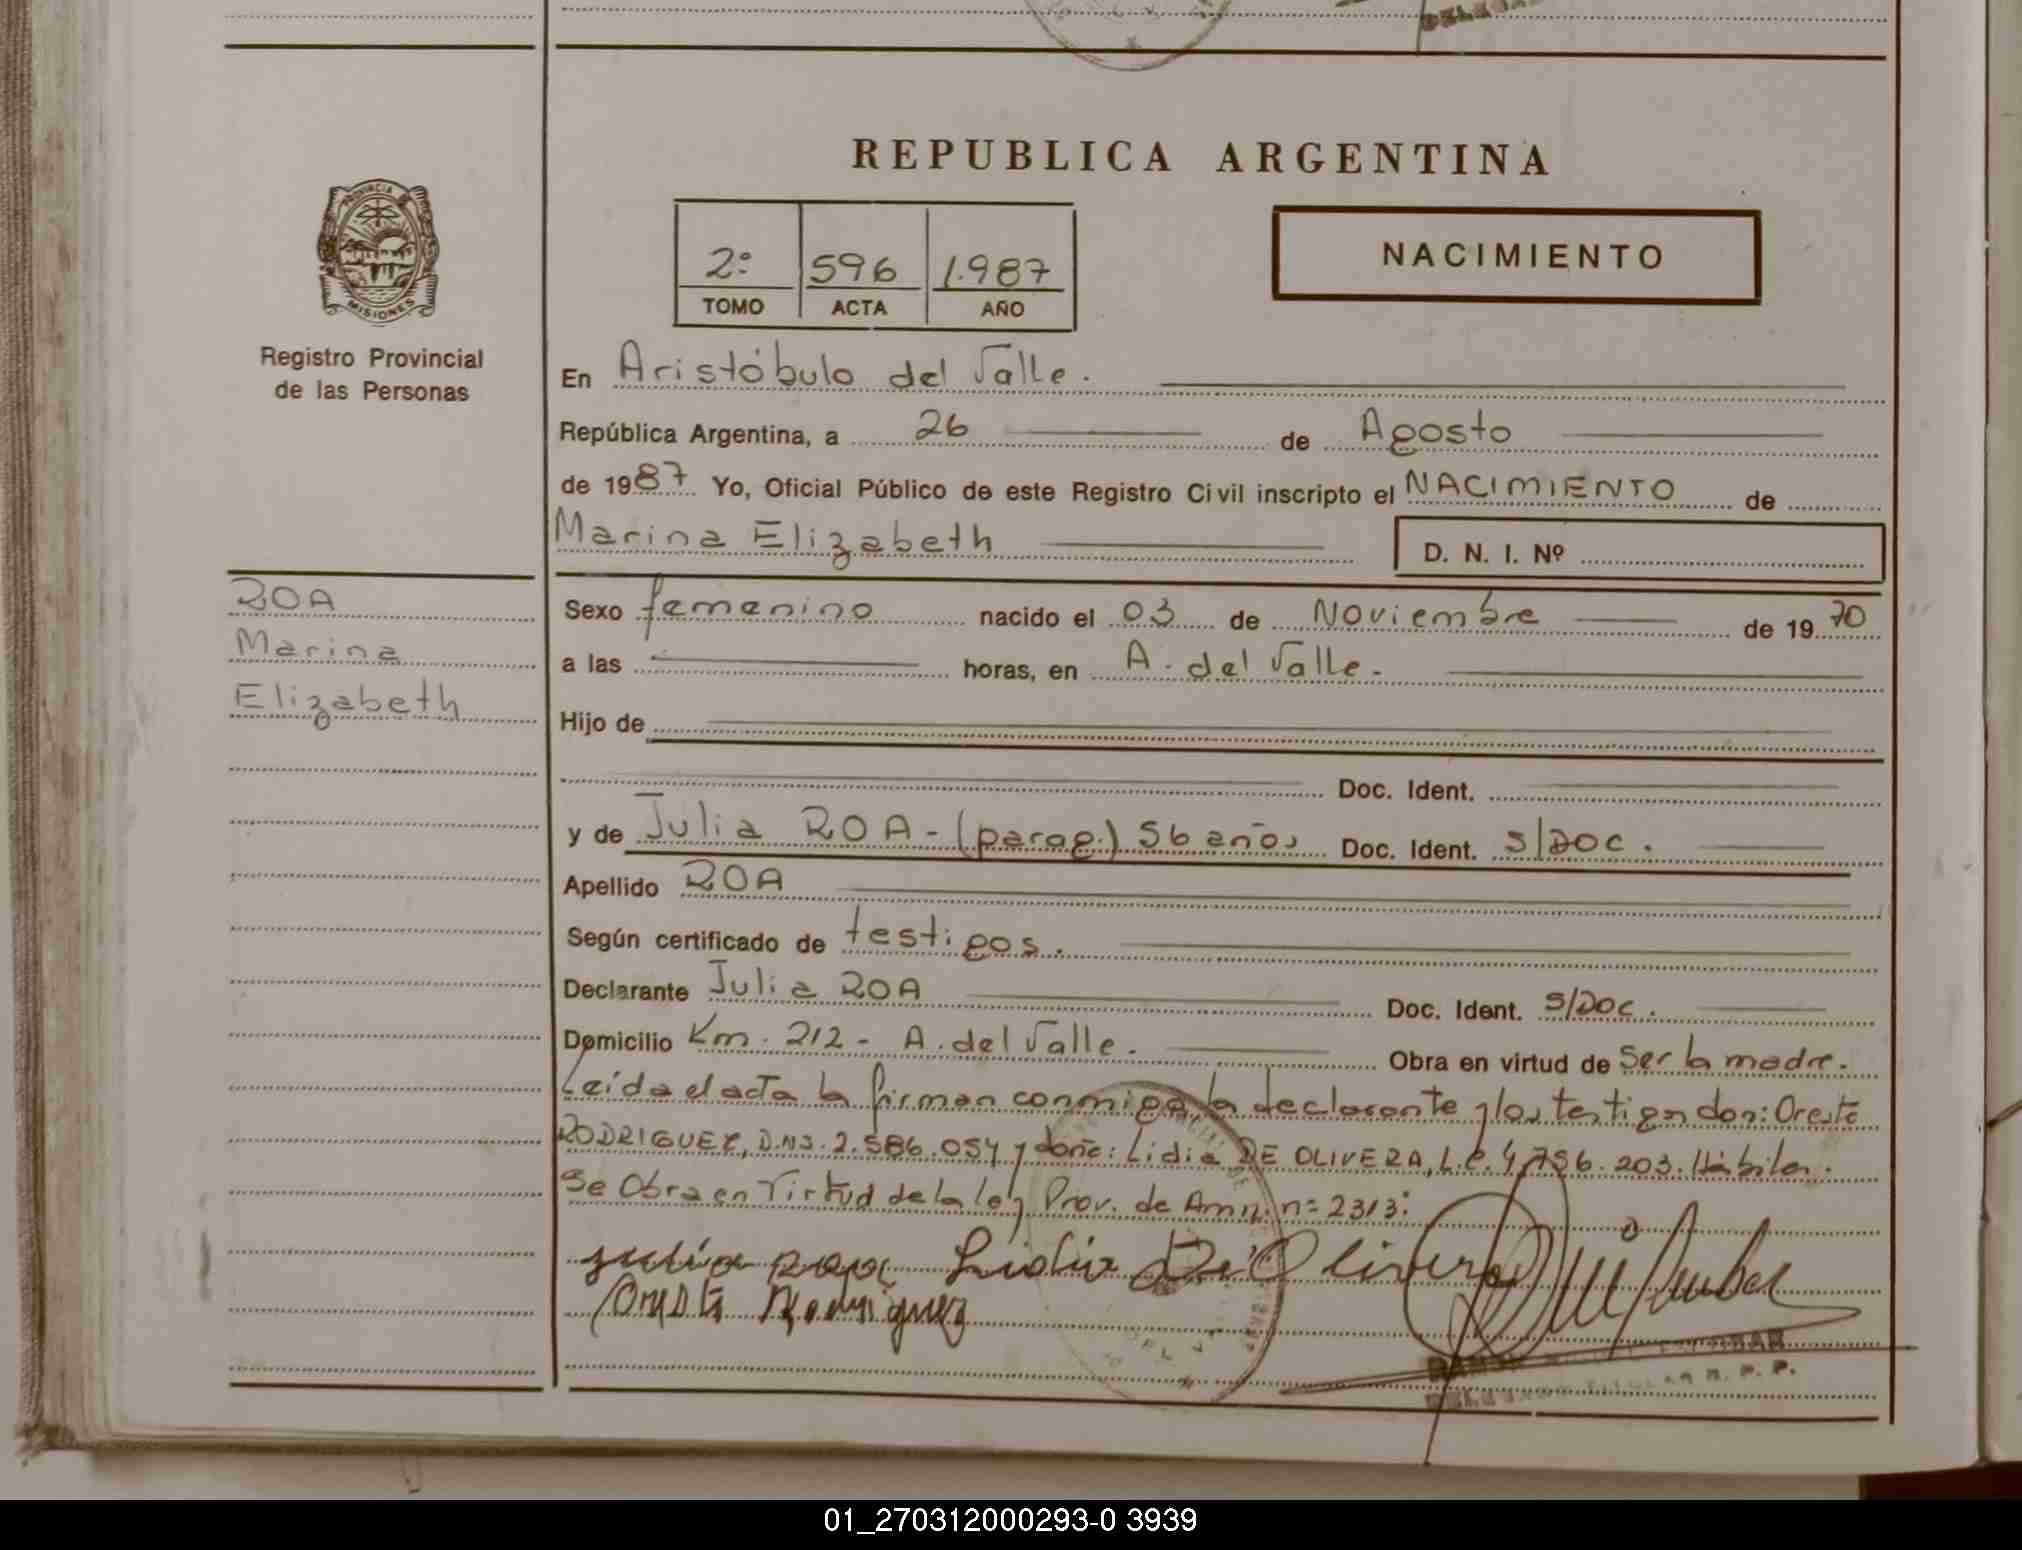 REPUBLICA ARGENTINA
PROVINCIA
MISIONES
Registro Provincial
de las Personas
2º 596 1.987
TOMO ACTA AÑO
NACIMIENTO
En Aristóbulo del Valle.
República Argentina, a 26 de Agosto
de 1987 Yo, Oficial Público de este Registro Civil inscripto el NACIMIENTO de
Marina Elizabeth D. N. I. Nº
ROA
Marina
Elizabeth
Sexo femenino nacido el 03 de Noviembre de 1970
a las horas, en A. del Valle.
Hijo de
Doc. Ident.
y de Julia ROA - (parag.) 56 años Doc. Ident. S/DOC.
Apellido ROA
Según certificado de testigos.
Declarante Julia ROA Doc. Ident. S/DOC.
Domicilio Km. 212 - A. del Valle. Obra en virtud de Ser la madre.
Leída el acta la firman conmigo, la declarante y los testigos don: Oreste
RODRIGUEZ, D.N.I. 2.586.054 y doña: Lidia DE OLIVERA, L.C. 4.756.203. Hábiles.
Se Obra en Virtud de la ley Prov. de Amn. nº 2313:
Julia Roa Lidia De Olivera
Oreste Rodriguez
TITULAR R. P. P.
01_270312000293-0 3939